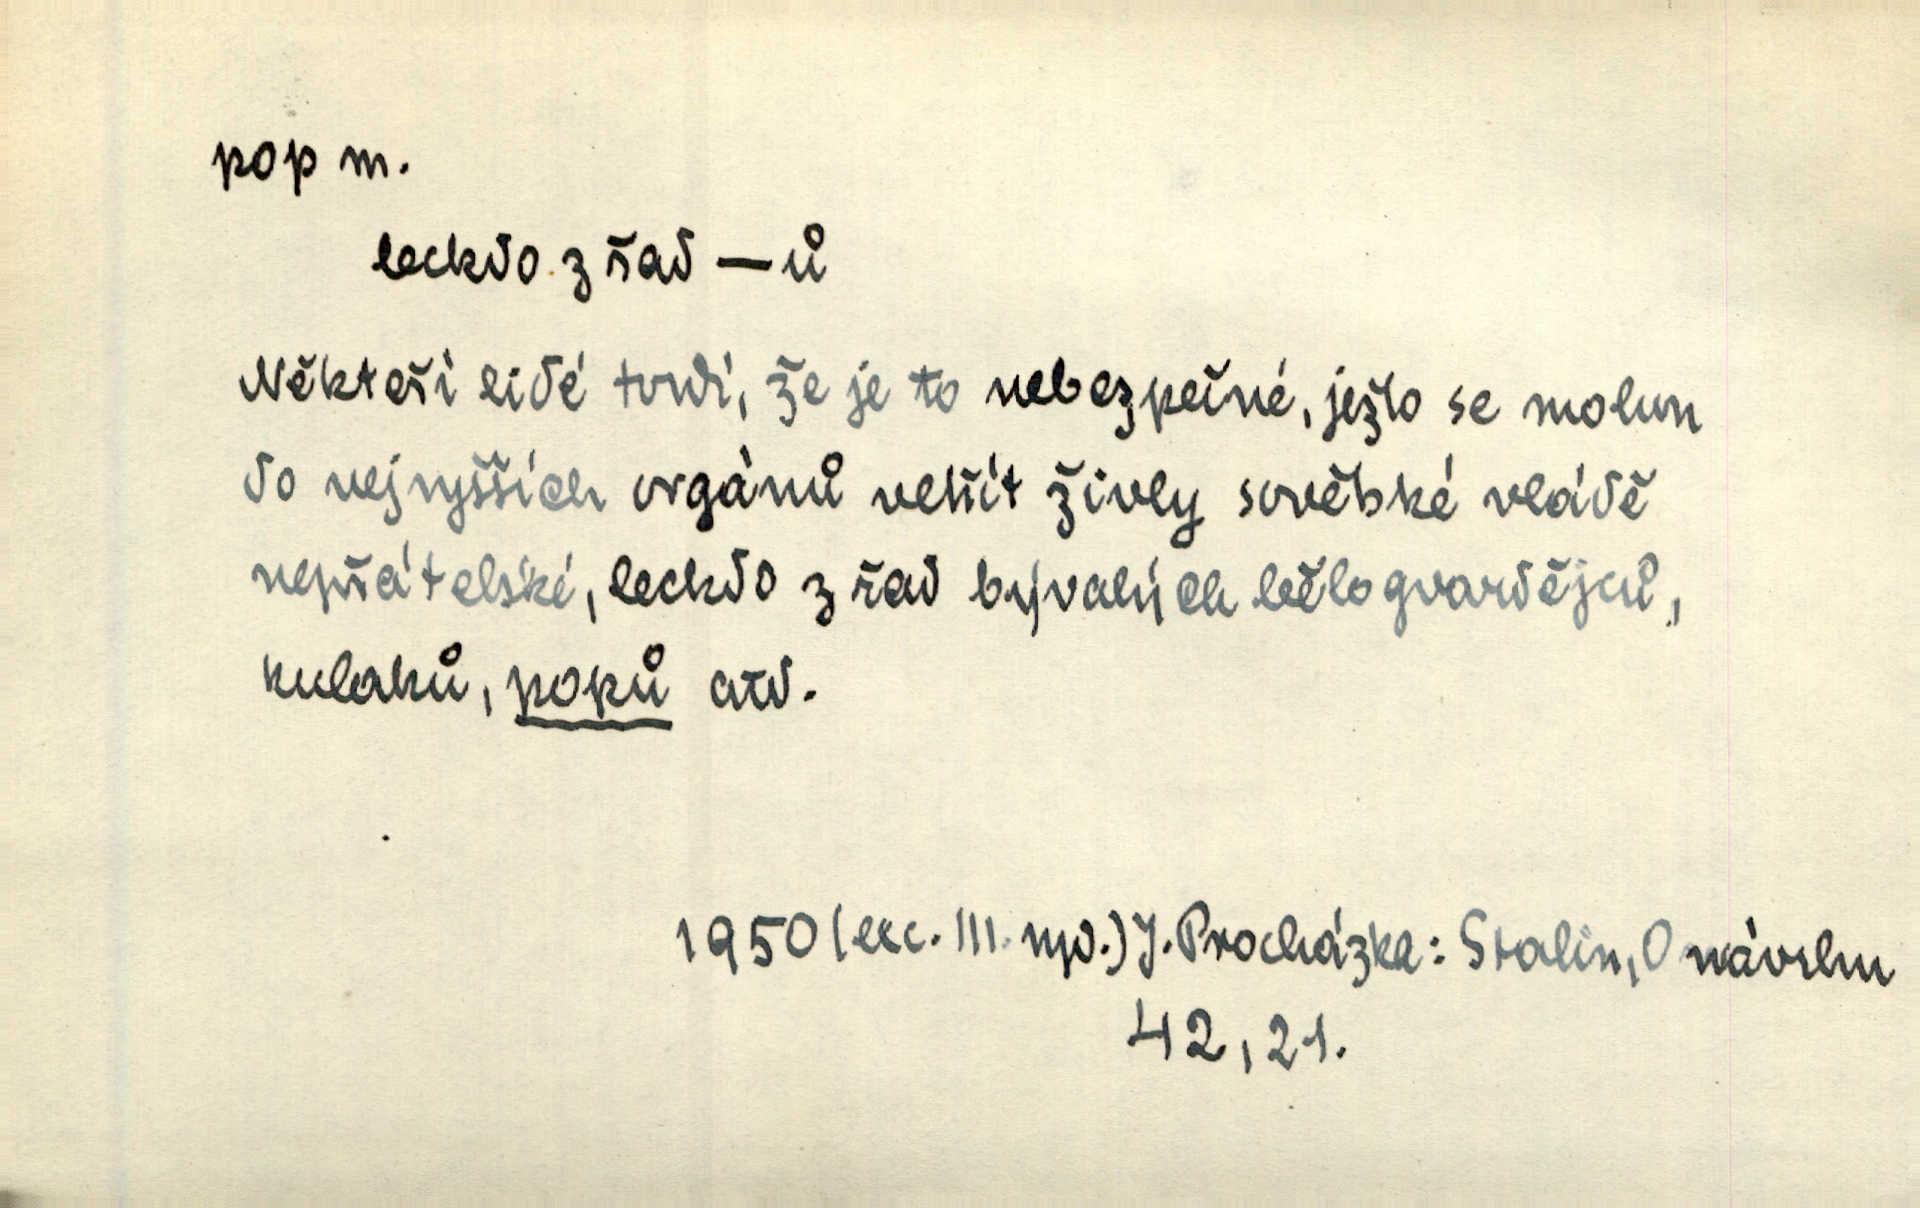 pop m.
leckdo z řad — ů
Někteří lidé tvrdí, že je to nebezpečné, ježto se mohou
do nejvyšších orgánů vetřít živly sovětské vládě
nepřátelské, leckdo z řad bývalých bělogvardějců,
kulaků, popů atd.
1950 (exc. III. vyd.) J. Procházka: Stalin, O návrhu
42, 21.